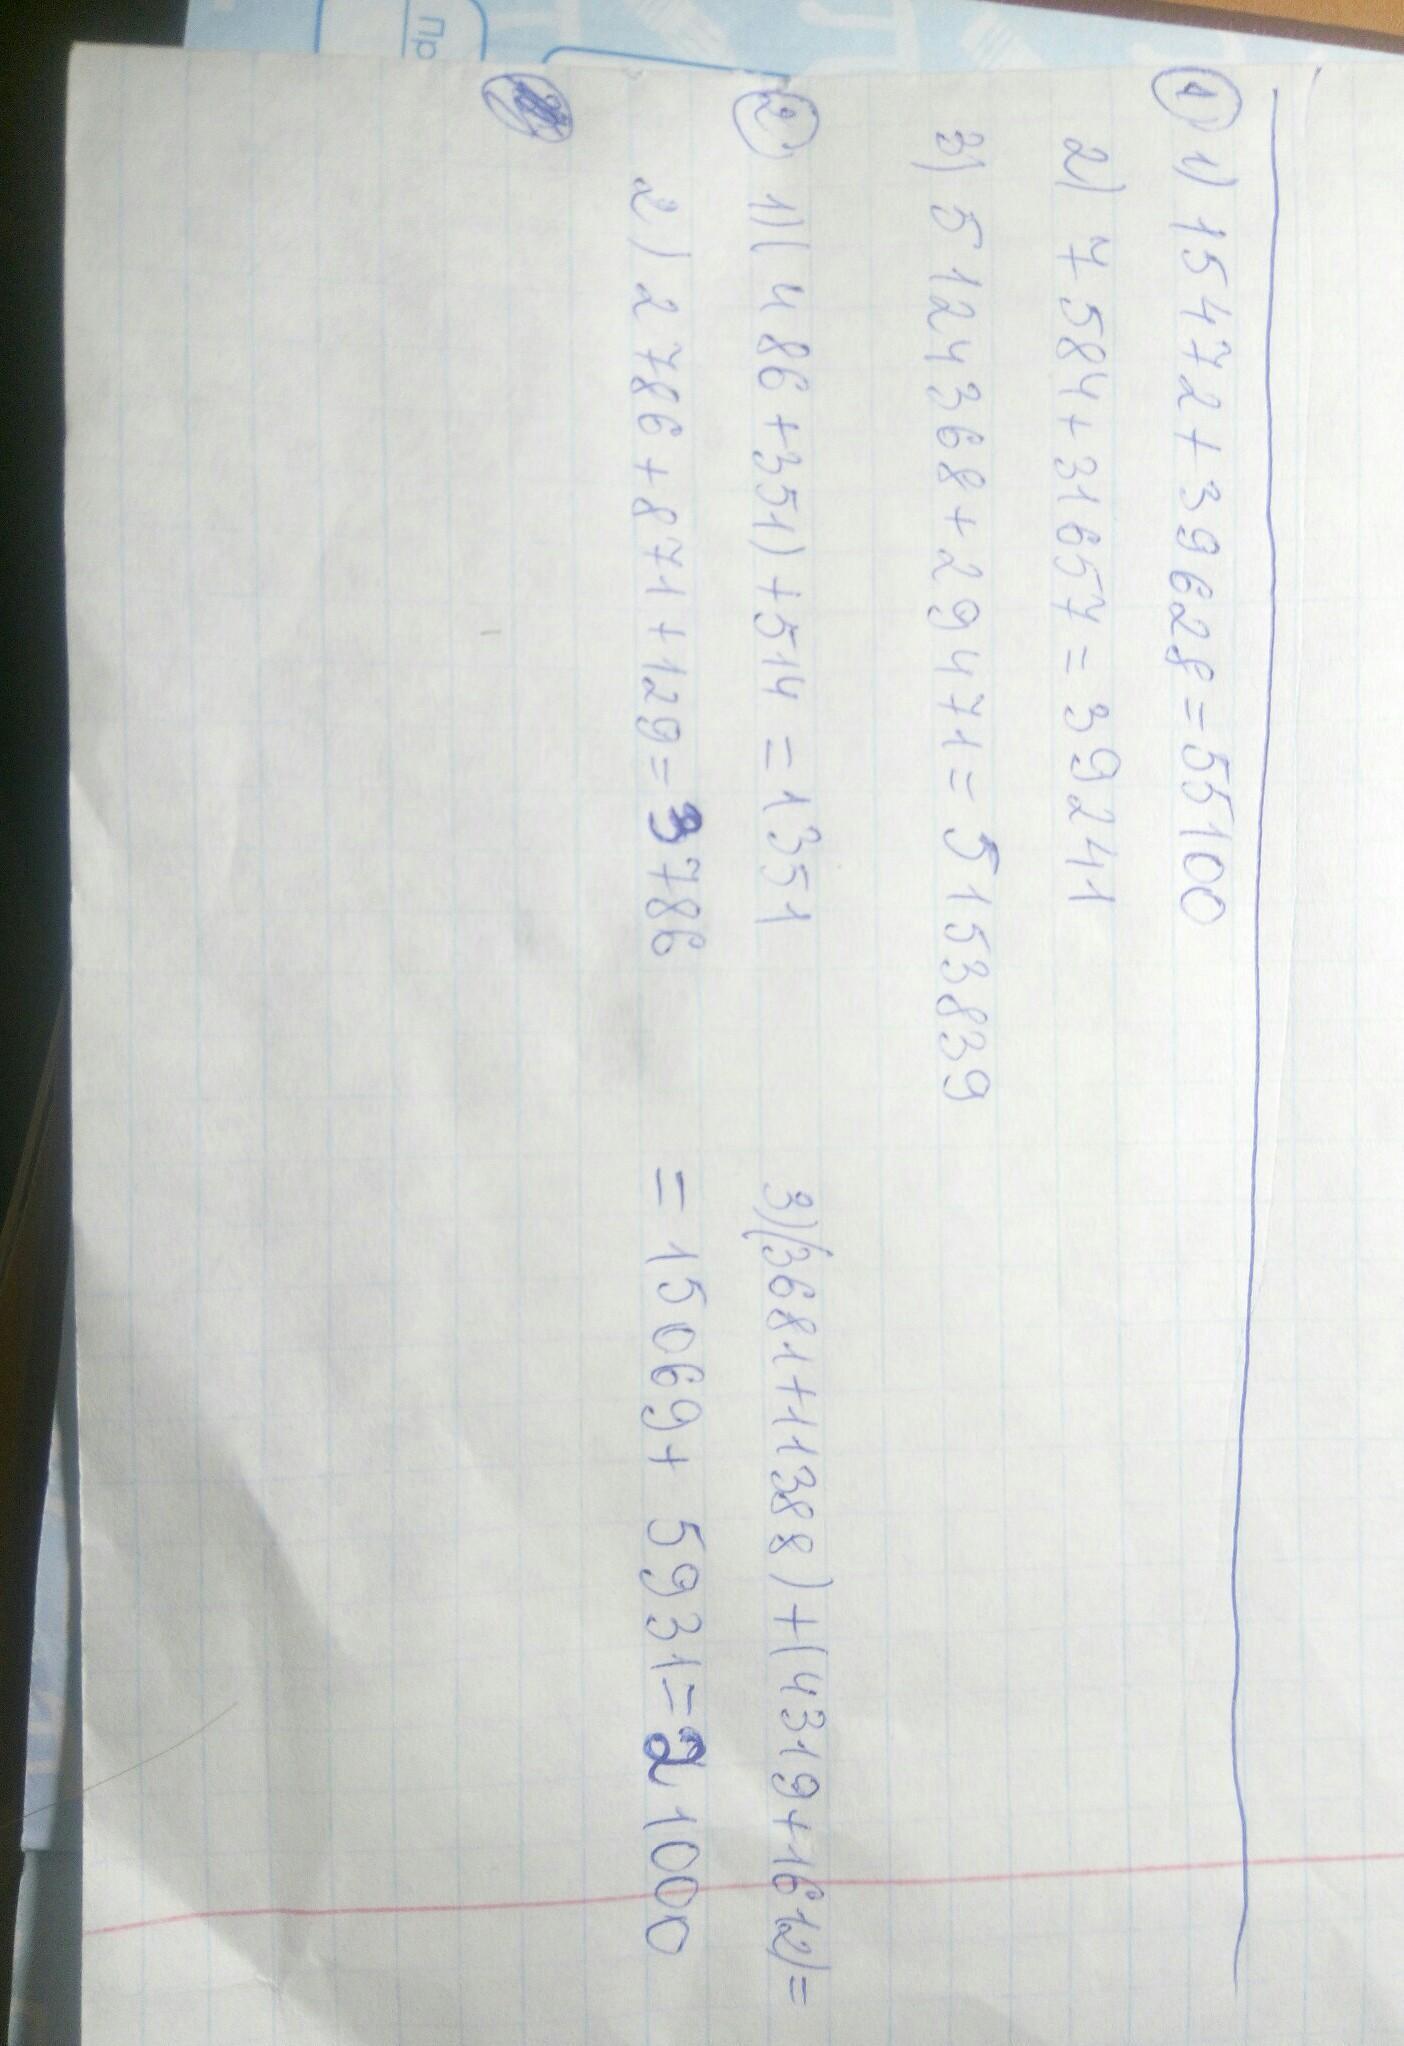 ① 1) 15472+39628=55100
2) 7584+31657=39241
3) 5124368+29471=5153839
② 1) (486+351)+514=1351
2) 2786+871+129=3786
3) (3681+11388)+(4319+1612)=
=15069+5931=21000